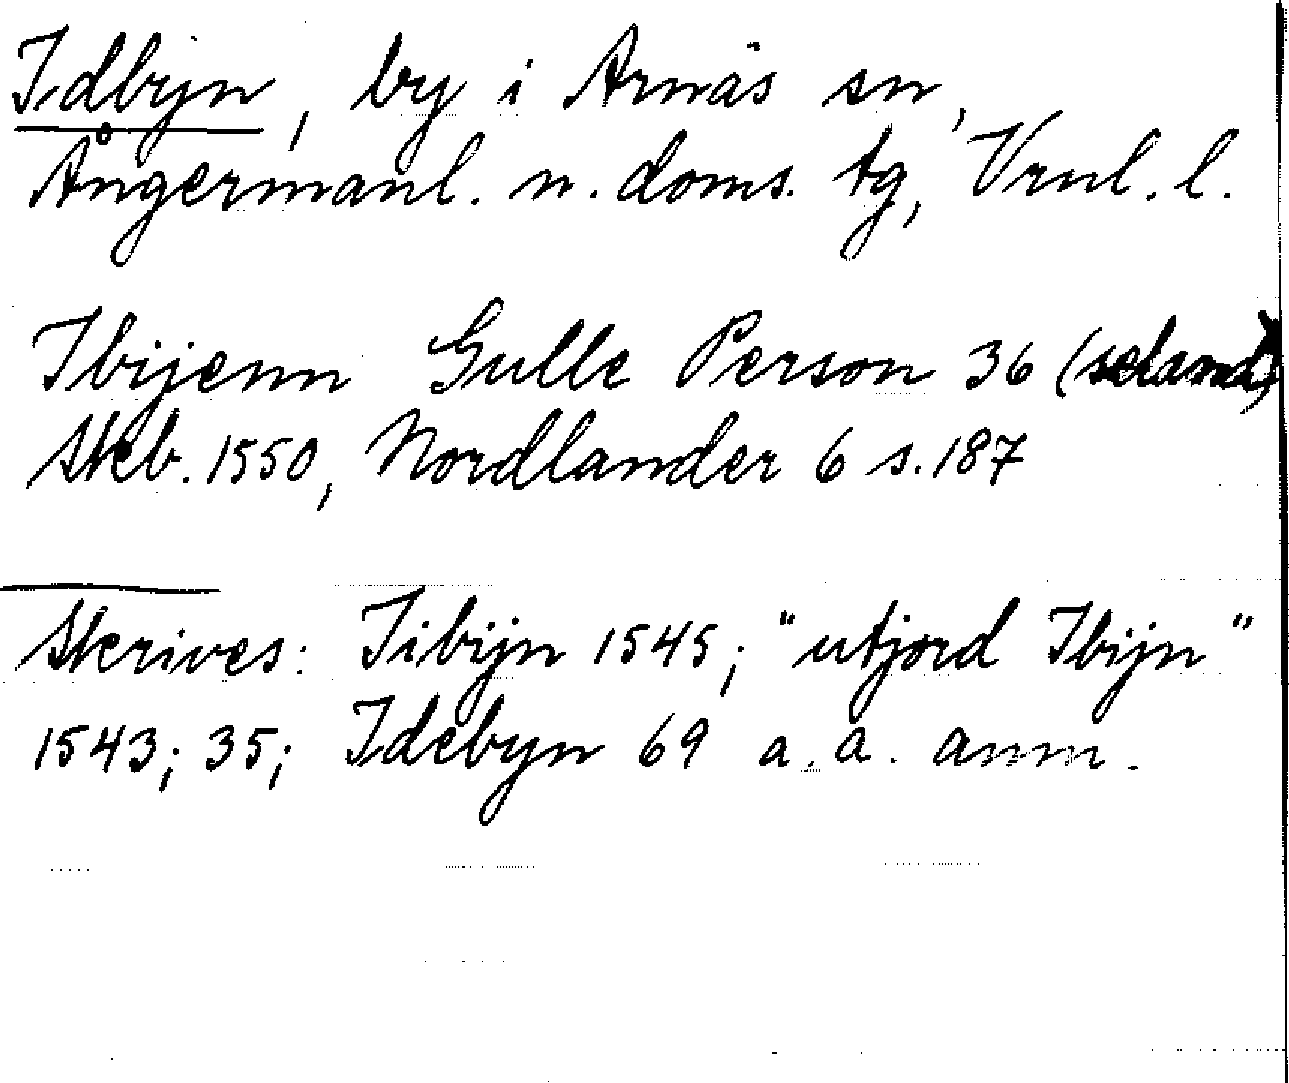 Idbyn, by i Arnäs sn,
Ångermanl. n. doms. tg, Vrnl. l.
Ibijenn Gulle Person 36 (seland)
Skb. 1550, Nordlander 6 s. 187
Skrives: Jibijn 1545; "utjord Ibijn"
1543; 35; Idebyn 69 a. a. anm.